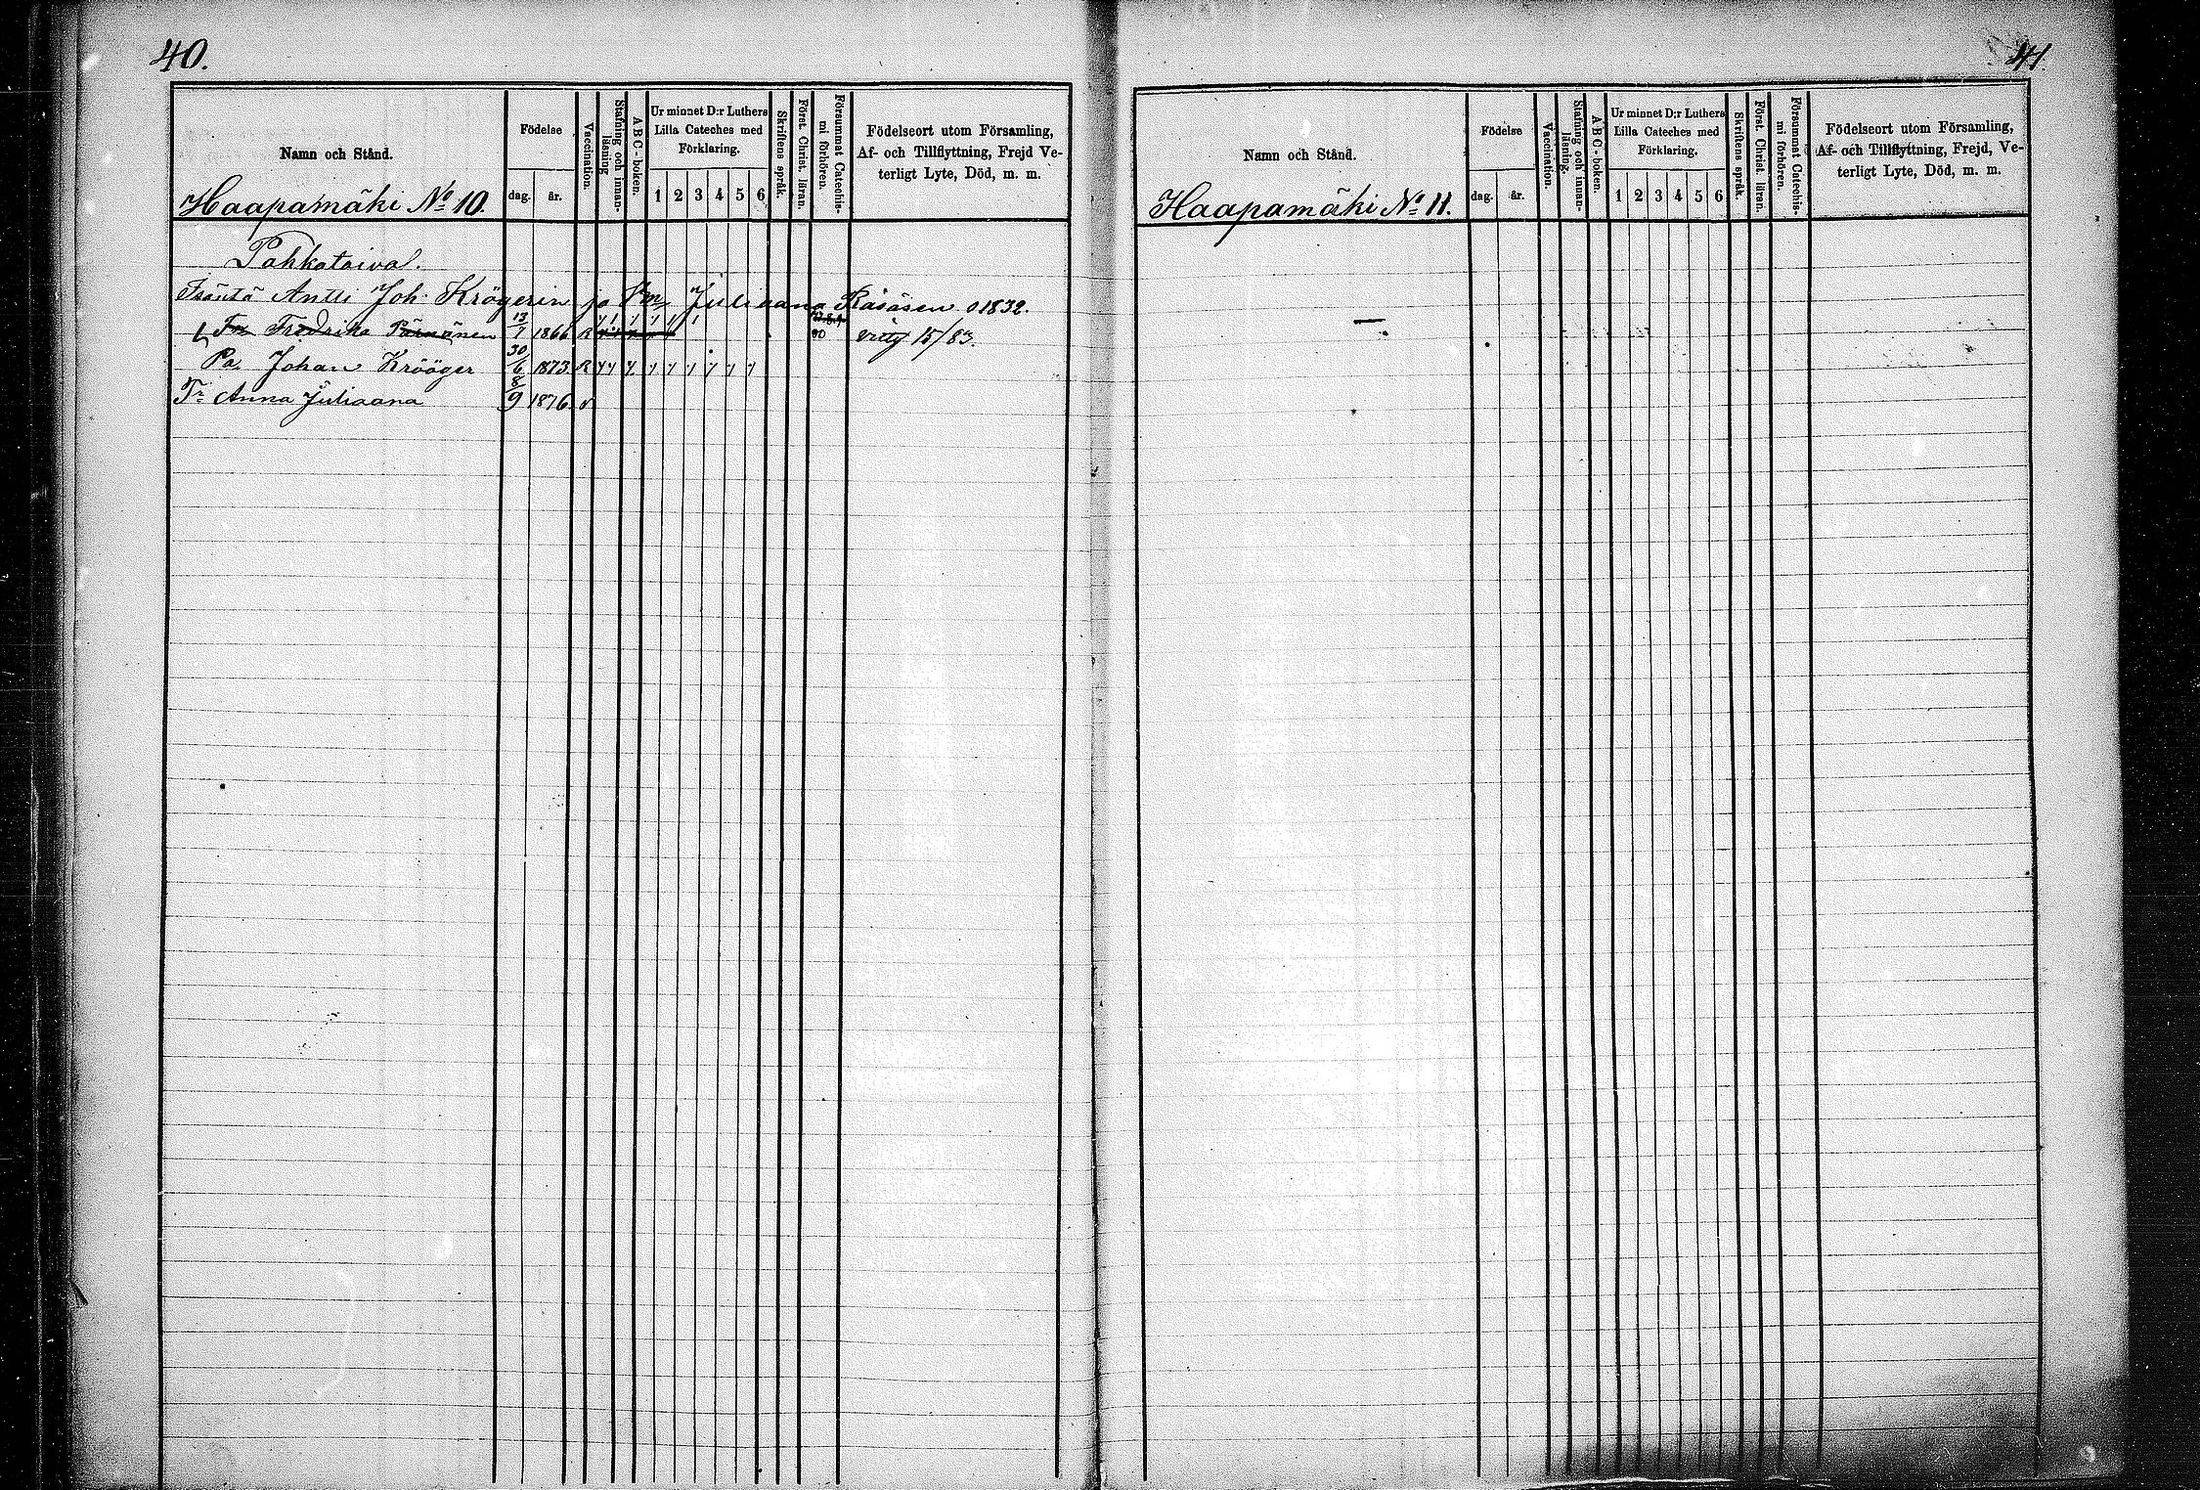 40.
Namn och Stånd.
Födelse
dag. år.
Vaccination.
Stafning och innanläsning
A B C - boken.
Ur minnet D:r Luthers
Lilla Cateches med
Förklaring.
1 2 3 4 5 6
Skriftens språk.
Först. Christ. läran.
Försummat Catechismi förhören.
Födelseort utom Församling,
Af- och Tillflyttning, Frejd Ve-
terligt Lyte, Död, m. m.
Haapamäki No 10.
Pahkataival.
Isäntä Antti Joh. Krögerin ja Vm Juliaana Räsäsen o 1832.
Fredrika 13/7 1866 R 90 15/83.
Po. Johan Krööger 30/6 1873 R
Tr Anna Juliaana 8/9 1876 v
41.
Namn och Stånd.
Födelse
dag. år.
Vaccination.
Stafning och innanläsning.
A B C - boken.
Ur minnet D:r Luthers
Lilla Cateches med
Förklaring.
1 2 3 4 5 6
Skriftens språk.
Först. Christ. läran.
Försummat Catechismi förhören.
Födelseort utom Församling,
Af- och Tillflyttning, Frejd, Ve-
terligt Lyte, Död, m. m.
Haapamäki No 11.